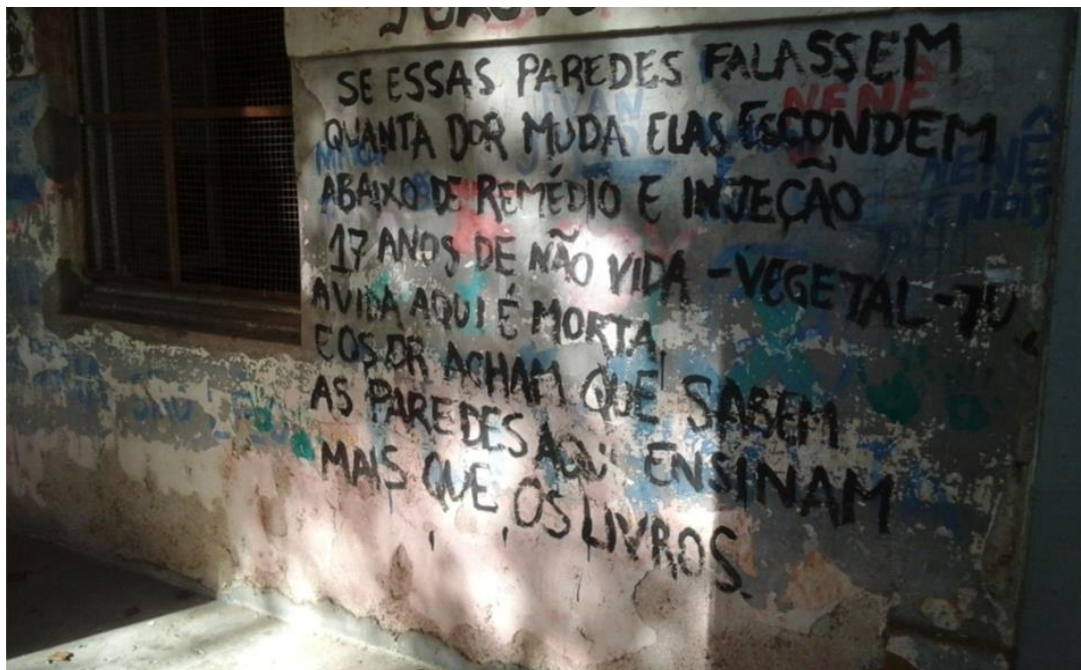 SE ESSAS PAREDES FALASSEM
QUANTA DOR MUDA ELAS ESCONDEM
ABAIXO DE REMÉDIO E INJEÇÃO
17 ANOS DE NÃO VIDA - VEGETAL - TV
A VIDA AQUI É MORTA,
E OS DR ACHAM QUE SABEM
AS PAREDES AQUI ENSINAM
MAIS QUE OS LIVROS.
IVAN
NENÊ
NENÊ